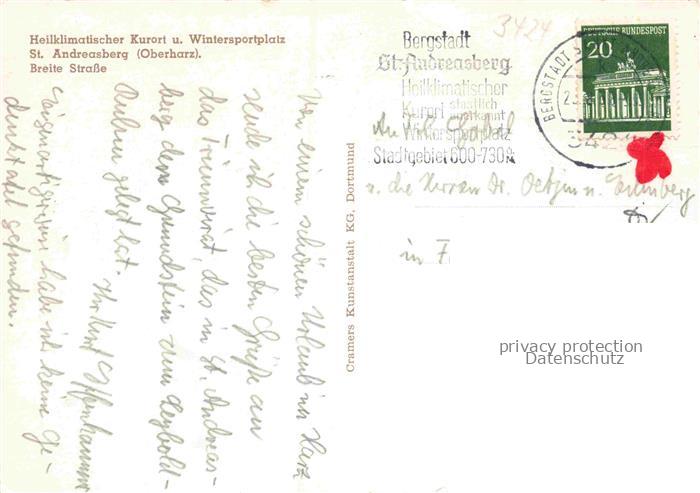 Heilklimatischer Kurort u. Wintersportplatz
St. Andreasberg (Oberharz).
Breite Straße
3424
Bergstadt
St. Andreasberg
Heilklimatischer
Kurort staatlich anerkannt
Wintersportplatz
Stadtgebiet 600-730
DEUTSCHE BUNDESPOST
20
BERGSTADT
Von einem schönen Urlaub im Harz
sende ich die besten Grüße an
das, das in St. Andreas-
berg den Grundstein zum Leybold-
gelegt hat.
Ihr
habe ich keine Ge-
gefunden.
Cramers Kunstanstalt KG, Dortmund
u. die Herren Dr.
in F
privacy protection
Datenschutz